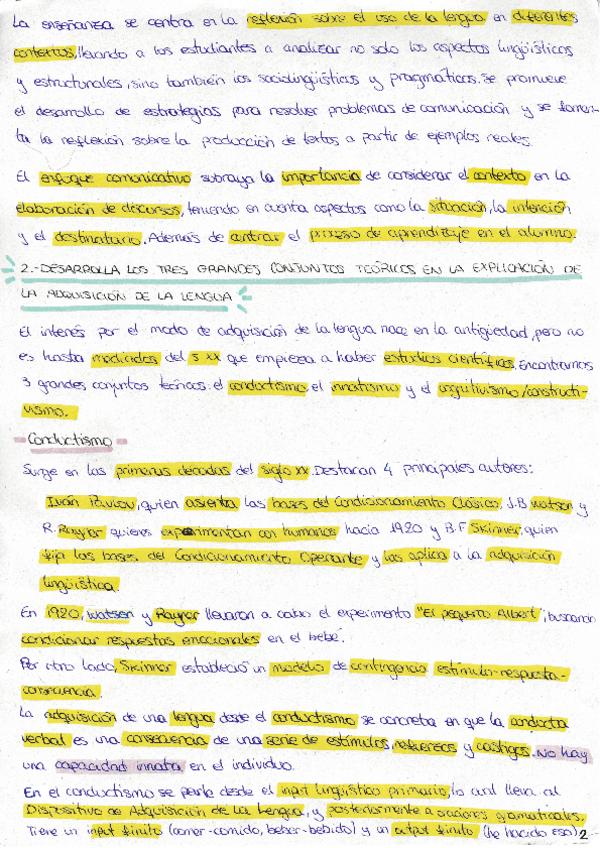 La enseñanza se centra en la reflexión sobre el uso de la lengua en diferentes
contextos, llevando a los estudiantes a analizar no solo los aspectos lingüísticos
y estructurales, sino también los sociolingüísticos y pragmáticos. Se promueve
el desarrollo de estrategias para resolver problemas de comunicación y se fomen-
ta la reflexión sobre la producción de textos a partir de ejemplos reales.
El enfoque comunicativo subraya la importancia de considerar el contexto en la
elaboración de discursos, teniendo en cuenta aspectos como la situación, la intención
y el destinatario. Además de centrar el proceso de aprendizaje en el alumno.
2.-DESARROLLA LOS TRES GRANDES CONJUNTOS TEÓRICOS EN LA EXPLICACIÓN DE
LA ADQUISICIÓN DE LA LENGUA
El interés por el modo de adquisición de la lengua nace en la antigüedad, pero no
es hasta mediados del s XX que empieza a haber estudios científicos. Encontramos
3 grandes conjuntos teóricos: el conductismo, el innatismo y el cognitivismo/constructi-
vismo.
- Conductismo -
Surge en las primeras décadas del siglo XX. Destacan 4 principales autores:
Iván Pavlov, quien asienta las bases del Condicionamiento Clásico. J.B Watson y
R. Rayner quienes experimentan con humanos hacia 1920 y B.F Skinner, quien
fija las bases del Condicionamiento Operante y las aplica a la adquisición
lingüística.
En 1920, Watson y Rayner llevaron a cabo el experimento "El pequeño Albert", buscaron
condicionar respuestas emocionales en el bebé.
Por otro lado, Skinner estableció un modelo de contingencia estímulo-respuesta-
consecuencia.
La adquisición de una lengua desde el conductismo se concreta en que la conducta
verbal es una consecuencia de una serie de estímulos, refuerzos y castigos. No hay
una capacidad innata en el individuo.
En el conductismo se parte desde el input lingüístico primario, lo cual lleva al
Dispositivo de Adquisición de la Lengua, y posteriormente a oraciones gramaticales.
Tiene un input finito (comer-comido, beber-bebido) y un output finito (he hacido eso)
2